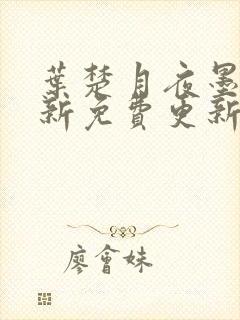 葉楚月夜墨
新免費更新
廖會妹